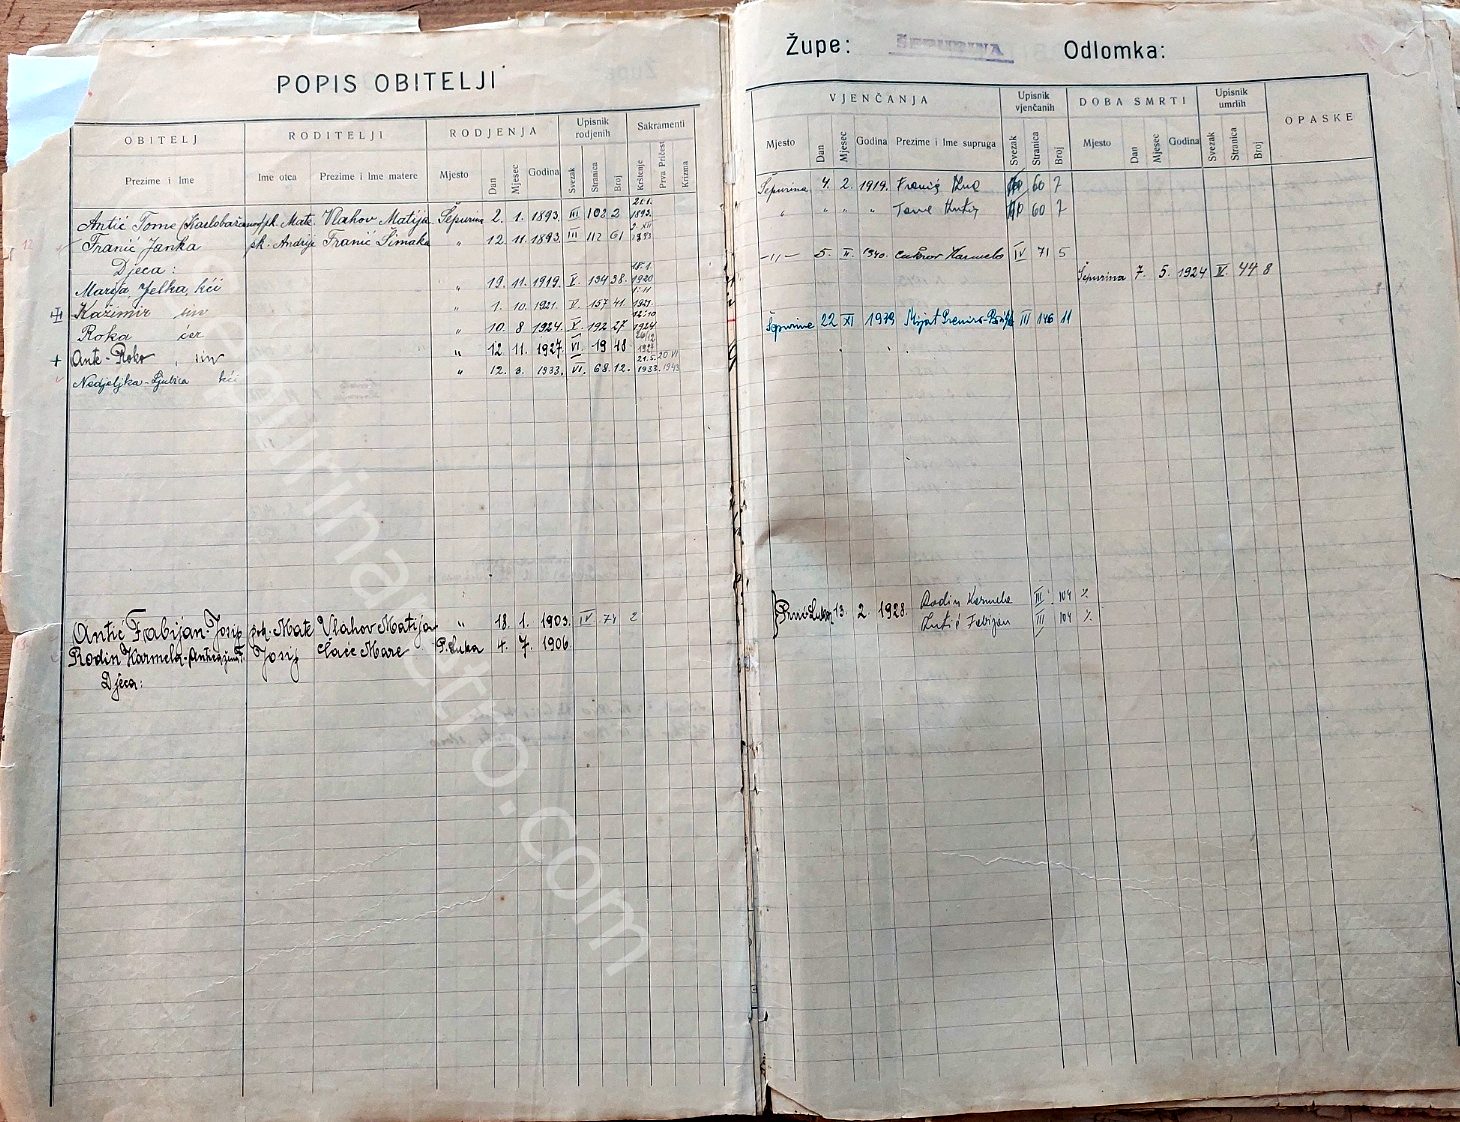 POPIS OBITELJI
OBITELJ RODITELJI RODJENJA Upisnik rodjenih Sakramenti
Prezime i Ime Ime otca Prezime i Ime matere Mjesto Dan Mjesec Godina Svezak Stranica Broj Krštenje Prva Pričest Krizma
Antić Tome pk. Mate Vlahov Matija Šepurina 2. 1. 1893. III 102 2 1893.
Franić Janka pk. Andrije Franić Šimaka " 12. 11. 1893. III 112 61 1893
Djeca:
Marija Jelka, kći " 19. 11. 1919. V. 134 38. 18.1. 1920
Kažimir sin " 1. 10. 1921. V. 157 41. 1921.
Roka " 10. 8 1924. V. 192 27 1924
Ante-Roko, sin " 12. 11. 1927. VI. 19 48
Nedjeljka-Ljubica kći " 12. 3. 1933. VI. 68. 12. 21.5. 1933. 20 VI 1943
Antić Fabijan-Josip pok. Mate Vlahov Matija " 18. 1. 1903. IV 74 2
Rodin Karmela Josip Čače Mare P. Luka 4. 7. 1906.
Djeca:
Župe: ŠEPURINA Odlomka:
VJENČANJA Upisnik vjenčanih DOBA SMRTI Upisnik umrlih OPASKE
Mjesto Dan Mjesec Godina Prezime i Ime supruga Svezak Stranica Broj Mjesto Dan Mjesec Godina Svezak Stranica Broj
Šepurina 4. 2. 1919. Franić 60 7
" " " " 60 7
-"- 5. II. 1940. Karmelo IV 71 5
Šepurina 7. 5. 1924 IV. 44 8
Šepurine 22 XI 1979 Mijat III 146 11
Prvić Luka 13. 2. 1928. Rodin Karmela III. 104
Antić Fabijan III 104
sepurinaretro.com